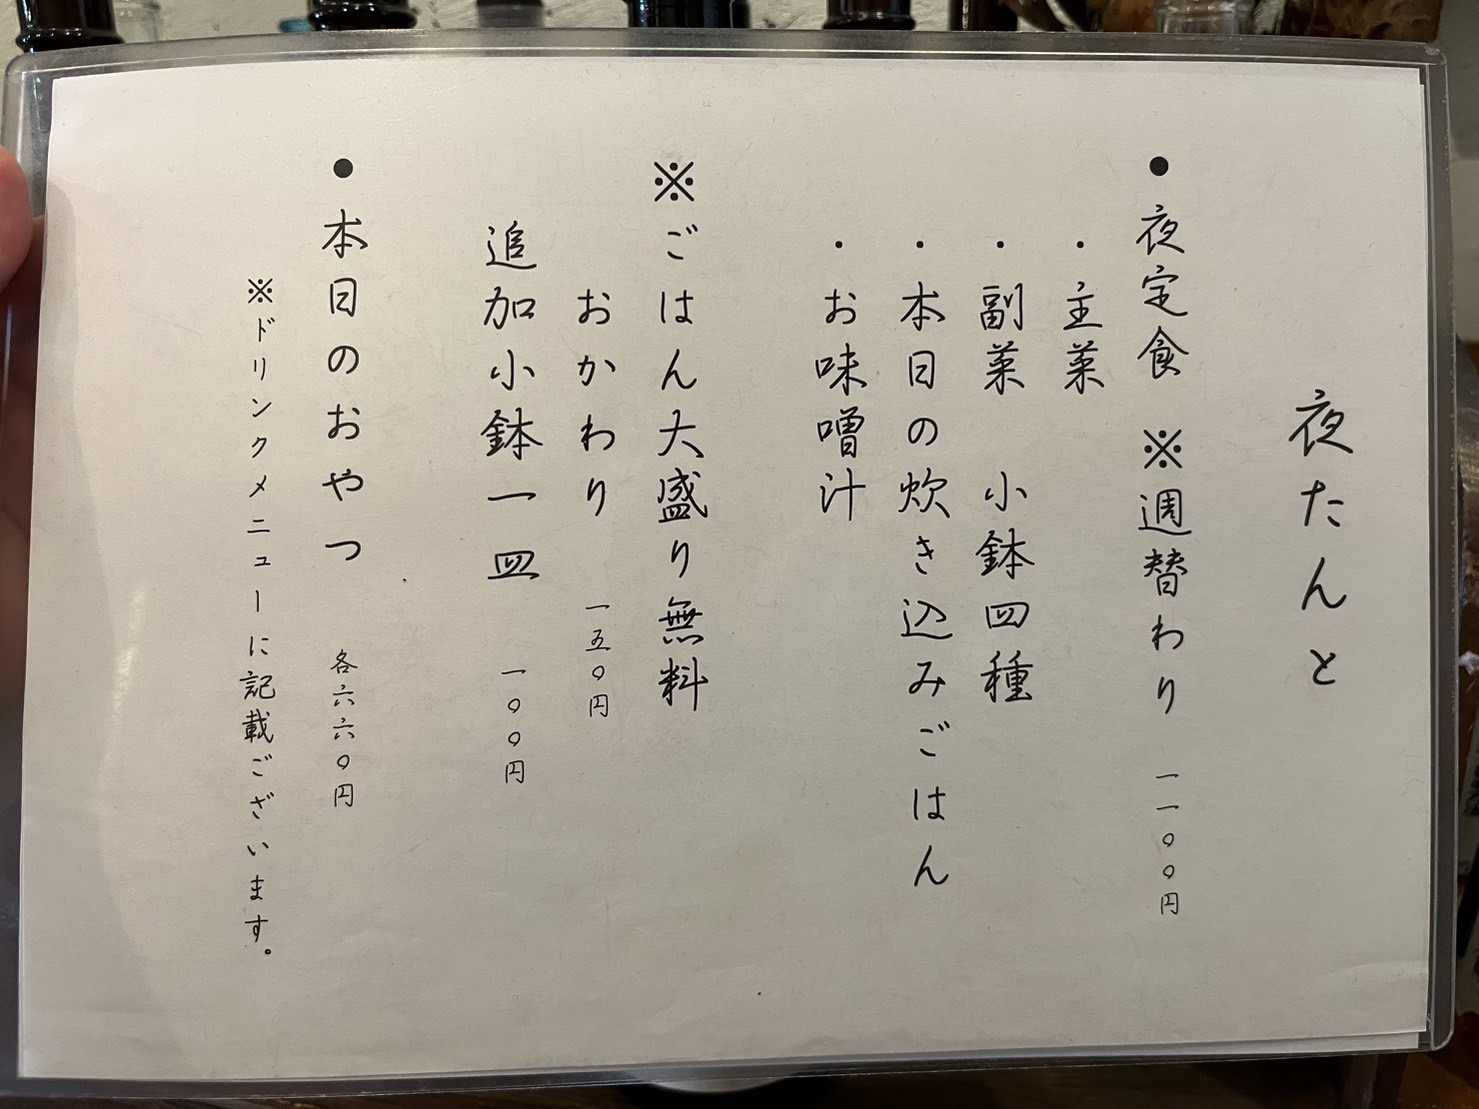 夜たんと
●夜定食 ※週替わり 一一〇〇円
・主菜
・副菜 小鉢四種
・本日の炊き込みごはん
・お味噌汁
※ごはん大盛り無料
おかわり 一五〇円
追加小鉢一皿 一〇〇円
●本日のおやつ 各六六〇円
※ドリンクメニューに記載ございます。